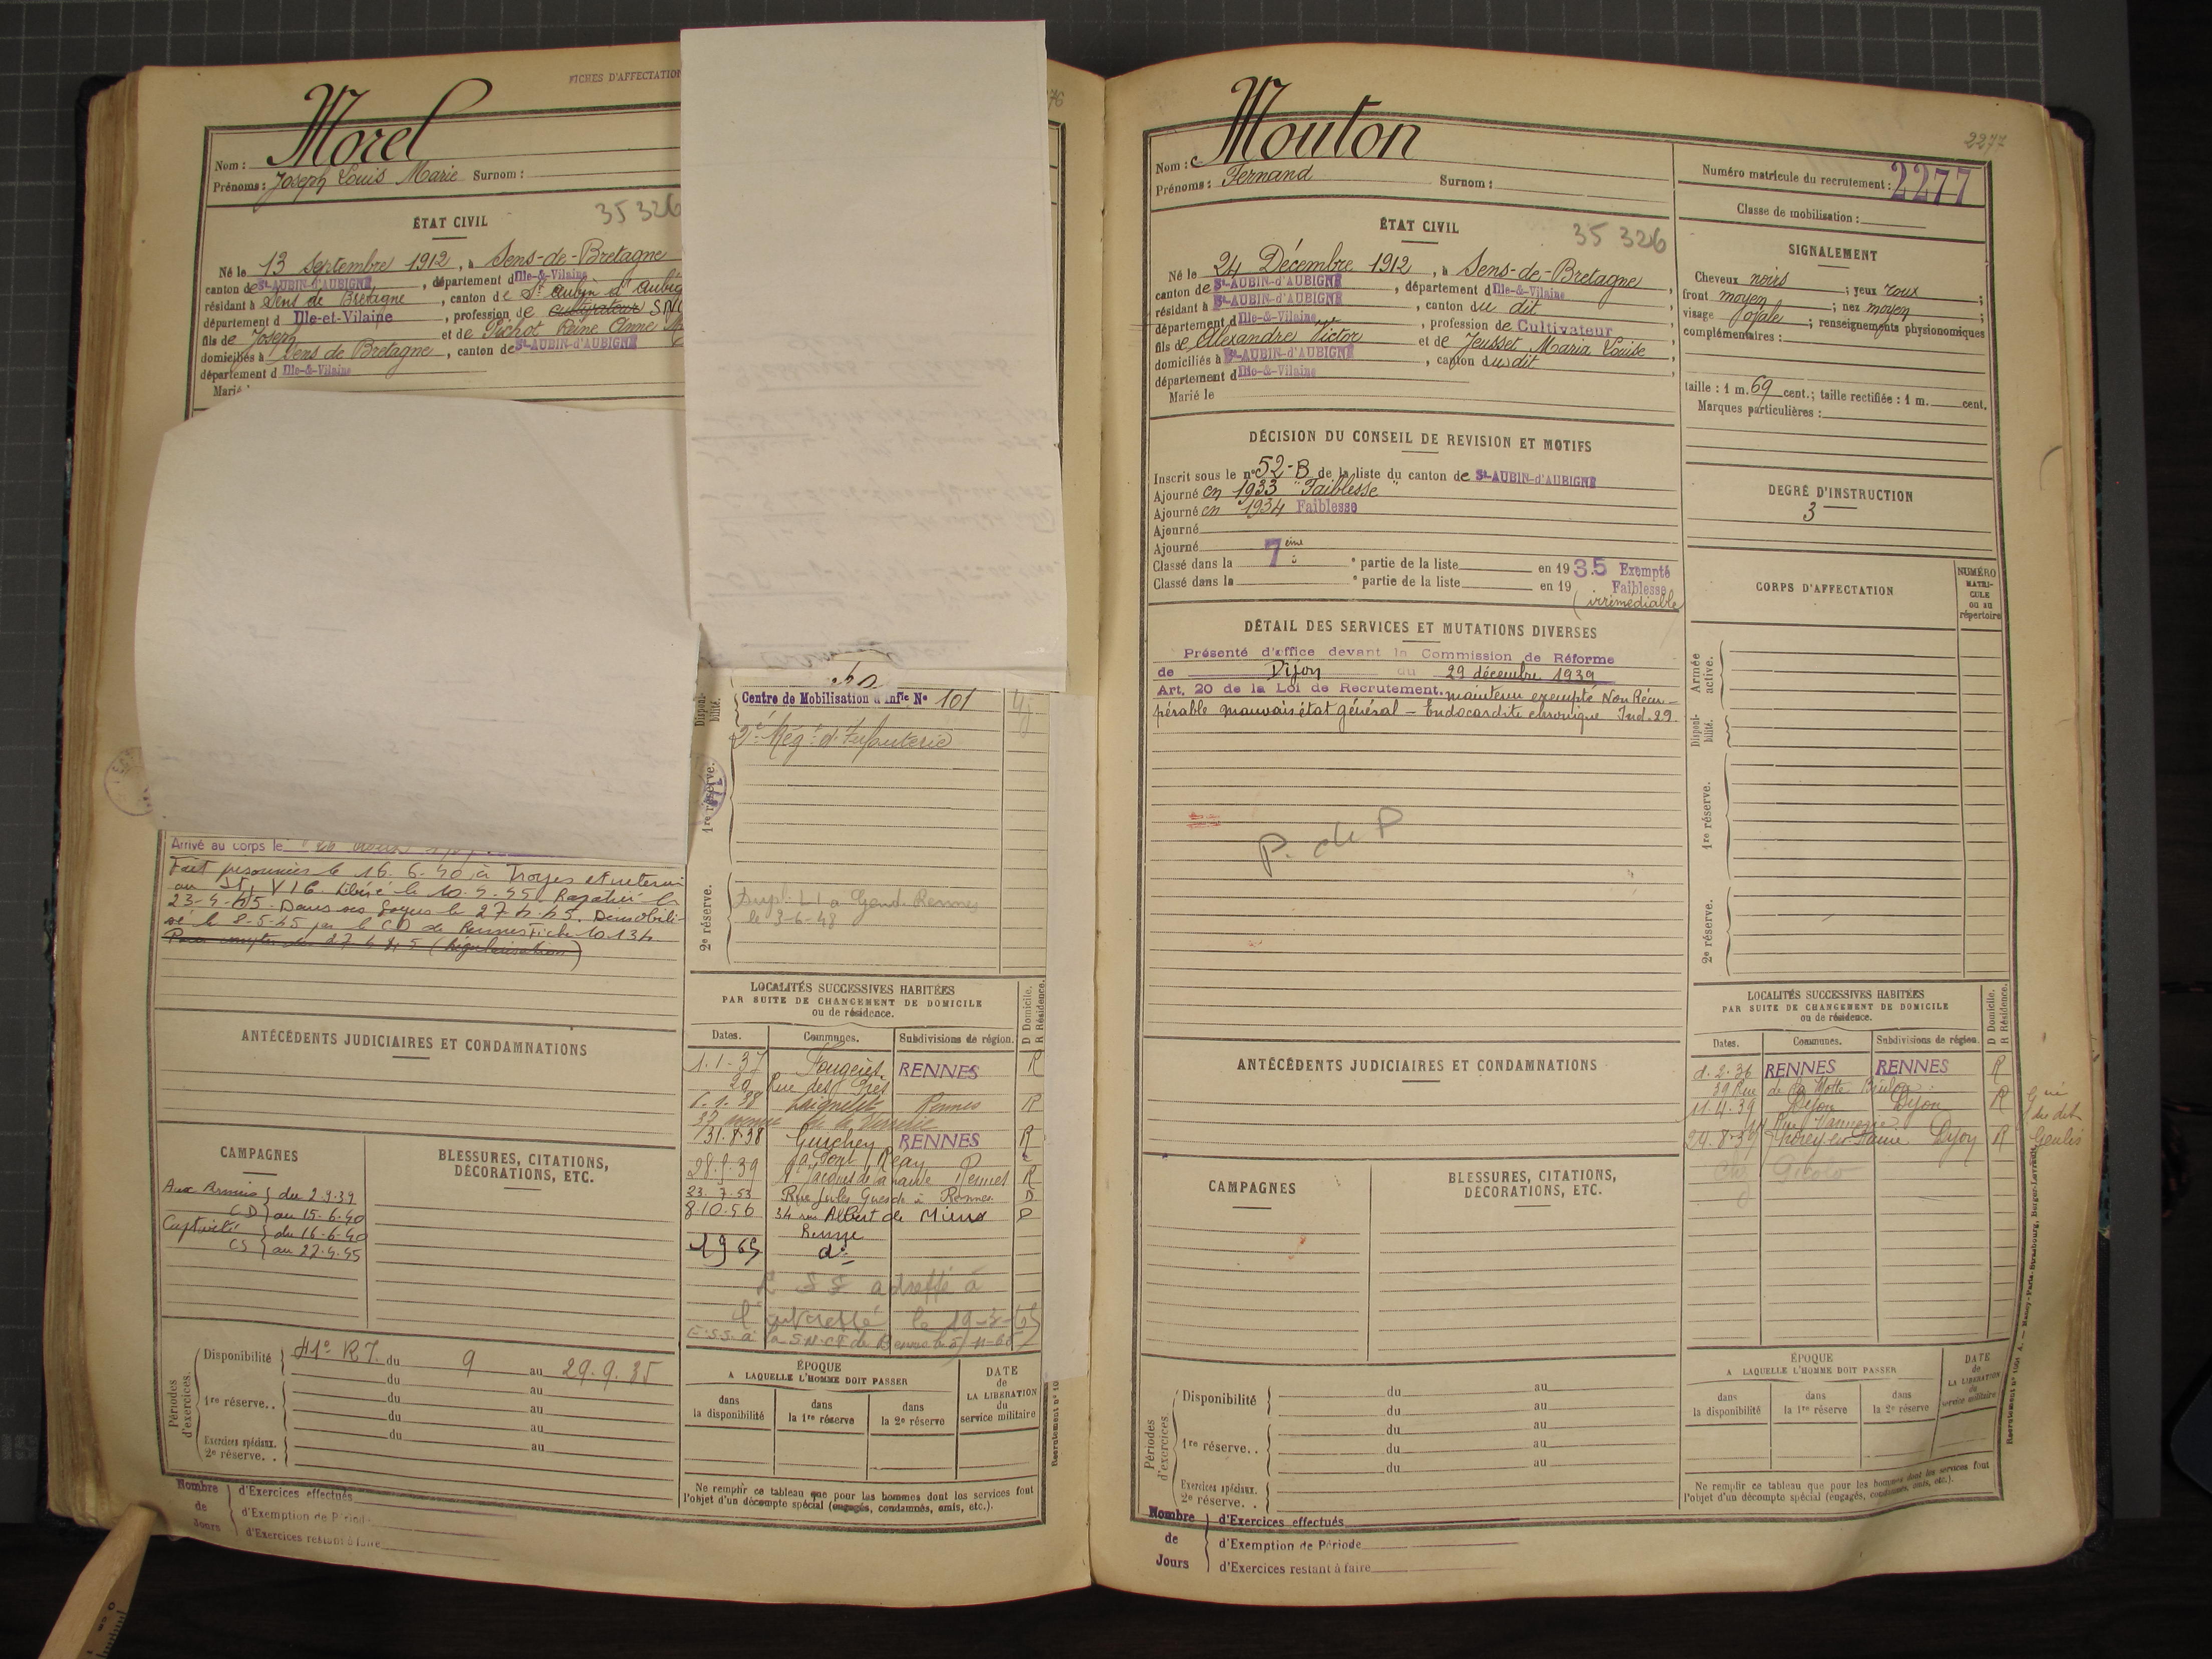 FICHES D'AFFECTATION
Nom : Morel
Prénoms : Joseph Louis Marie Surnom :
ÉTAT CIVIL
35 326
Né le 13 Septembre 1912, à Sens-de-Bretagne
canton de St-AUBIN-D'AUBIGNÉ, département d Ille-&-Vilaine
résidant à Sens de Bretagne, canton de St Aubin d'Aubig
département d Ille-et-Vilaine, profession de cultivateur
fils de Joseph et de Pichot Reine Anne
domiciliés à Sens de Bretagne, canton de St-AUBIN-d'AUBIGNÉ
département d Ille-&-Vilaine
Marié
Centre de Mobilisation d'Infie No 101
Disponibilité.
2e Régt d'Infanterie
1re réserve.
2e réserve.
Gend. Rennes
le 3-6-48
Arrivé au corps le
Fait prisonnier le 16.6.40 à Troyes et retenu
au St. VI C. Libéré le 10.4.45. Rapatrié le
23-4-45. Dans ses foyers le 27.4.45. Démobili-
sé le 8-5-45 par le CD de Rennes fiche 10.134
Pour compter du 27 4 45 (Régularisation)
ANTÉCÉDENTS JUDICIAIRES ET CONDAMNATIONS
CAMPAGNES
BLESSURES, CITATIONS,
DÉCORATIONS, ETC.
Aux Armées } du 2.9.39
CD } au 15.6.40
Captivité } du 16-6-40
CS } au 27.4.45
LOCALITÉS SUCCESSIVES HABITÉES
PAR SUITE DE CHANGEMENT DE DOMICILE
ou de résidence.
D Domicile.
R Résidence.
Dates. Communes. Subdivisions de région.
1.1-37 Fougères RENNES R
20 Rue des Prés
1.38 Laignelet Rennes R
31.8.38 Guichen RENNES R
Pont Réan
28.9.39 Rennes R
23.7.53 Rue Jules Guesde à Rennes D
8 10.56 34 rue Albert de Mun D
Rennes
1965 do
E S S adressé à
l'intéressé le 19-3-65
E.S.S. à la S.N.C.F. de Rennes
Périodes d'exercices.
Disponibilité 41e R.I. du 9 au 29.9.35
du au
1re réserve.. du au
du au
du au
Exercices spéciaux.
2e réserve. . au
ÉPOQUE
A LAQUELLE L'HOMME DOIT PASSER
dans la disponibilité
dans la 1re réserve
dans la 2e réserve
DATE
de
LA LIBÉRATION
du
service militaire
Ne remplir ce tableau que pour les hommes dont les services font
l'objet d'un décompte spécial (engagés, condamnés, omis, etc.).
Nombre de Jours
d'Exercices effectués
d'Exemption de Période
d'Exercices restant à faire
Recrutement no 10
2277
Nom : Mouton
Prénoms : Fernand Surnom :
Numéro matricule du recrutement : 2277
Classe de mobilisation :
ÉTAT CIVIL
35 326
Né le 24 Décembre 1912, à Sens-de-Bretagne
canton de St-AUBIN-d'AUBIGNÉ, département d Ille-&-Vilaine
résidant à St-AUBIN-d'AUBIGNÉ, canton du dit
département d Ille-&-Vilaine, profession de Cultivateur
fils de Alexandre Victor et de Jeusset Maria Louise
domiciliés à St-AUBIN-d'AUBIGNÉ, canton du dit
département d Ille-&-Vilaine
Marié le
SIGNALEMENT
Cheveux noirs ; yeux roux ;
front moyen ; nez moyen ;
visage ovale ; renseignements physionomiques
complémentaires :
taille : 1 m. 69 cent.; taille rectifiée : 1 m. cent.
Marques particulières :
DÉCISION DU CONSEIL DE REVISION ET MOTIFS
Inscrit sous le no 52-B de la liste du canton de St-AUBIN-d'AUBIGNÉ
Ajourné en 1933 "Faiblesse"
Ajourné en 1934 Faiblesse
Ajourné
Ajourné
Classé dans la 7ème partie de la liste en 1935 Exempté
Classé dans la e partie de la liste en 19 Faiblesse
(irrémédiable)
DEGRÉ D'INSTRUCTION
3
DÉTAIL DES SERVICES ET MUTATIONS DIVERSES
Présenté d'office devant la Commission de Réforme
de Dijon du 29 décembre 1939
Art. 20 de la Loi de Recrutement. maintenu exempté Non Récu-
pérable mauvais état général - Endocardite chronique Ind.29.
P. de P
CORPS D'AFFECTATION
NUMÉRO
MATRI-
CULE
ou au
répertoire
Armée active.
Disponibilité.
1re réserve.
2e réserve.
ANTÉCÉDENTS JUDICIAIRES ET CONDAMNATIONS
CAMPAGNES
BLESSURES, CITATIONS,
DÉCORATIONS, ETC.
LOCALITÉS SUCCESSIVES HABITÉES
PAR SUITE DE CHANGEMENT DE DOMICILE
ou de résidence.
D Domicile.
R Résidence.
Dates. Communes. Subdivisions de région.
1.2.36 RENNES RENNES R
39 Rue de la Motte Brûlon
11.4.39 Dijon Dijon R
Rue Vannerie
24.8-39 Dijon R Genlis
chez
Périodes d'exercices.
Disponibilité du au
du au
du au
1re réserve.. du au
du au
Exercices spéciaux.
2e réserve. .
ÉPOQUE
A LAQUELLE L'HOMME DOIT PASSER
dans la disponibilité
dans la 1re réserve
dans la 2e réserve
DATE
de
LA LIBÉRATION
du
service militaire
Ne remplir ce tableau que pour les hommes dont les services font
l'objet d'un décompte spécial (engagés, condamnés, omis, etc.).
Nombre de Jours
d'Exercices effectués
d'Exemption de Période
d'Exercices restant à faire